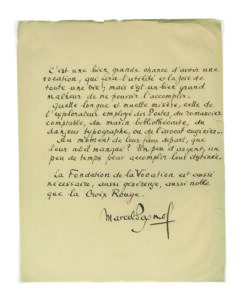 C'est une bien grande chance d'avoir une
vocation, qui fera l'utilité et la joie de
toute une vie ; mais c'est un bien grand
malheur de ne pouvoir l'accomplir.
Quelle longue et muette misère, celle de
l'explorateur employé des Postes, du romancier
comptable, du marin bibliothécaire, du
danseur typographe, ou de l'avocat
Au moment de leur faux départ, que
leur a-t-il manqué ? Un peu d'argent, un
peu de temps pour accomplir leur destinée.
La Fondation de la Vocation est aussi
nécessaire, aussi généreuse, aussi noble
que la Croix Rouge.
Marcel Pagnol